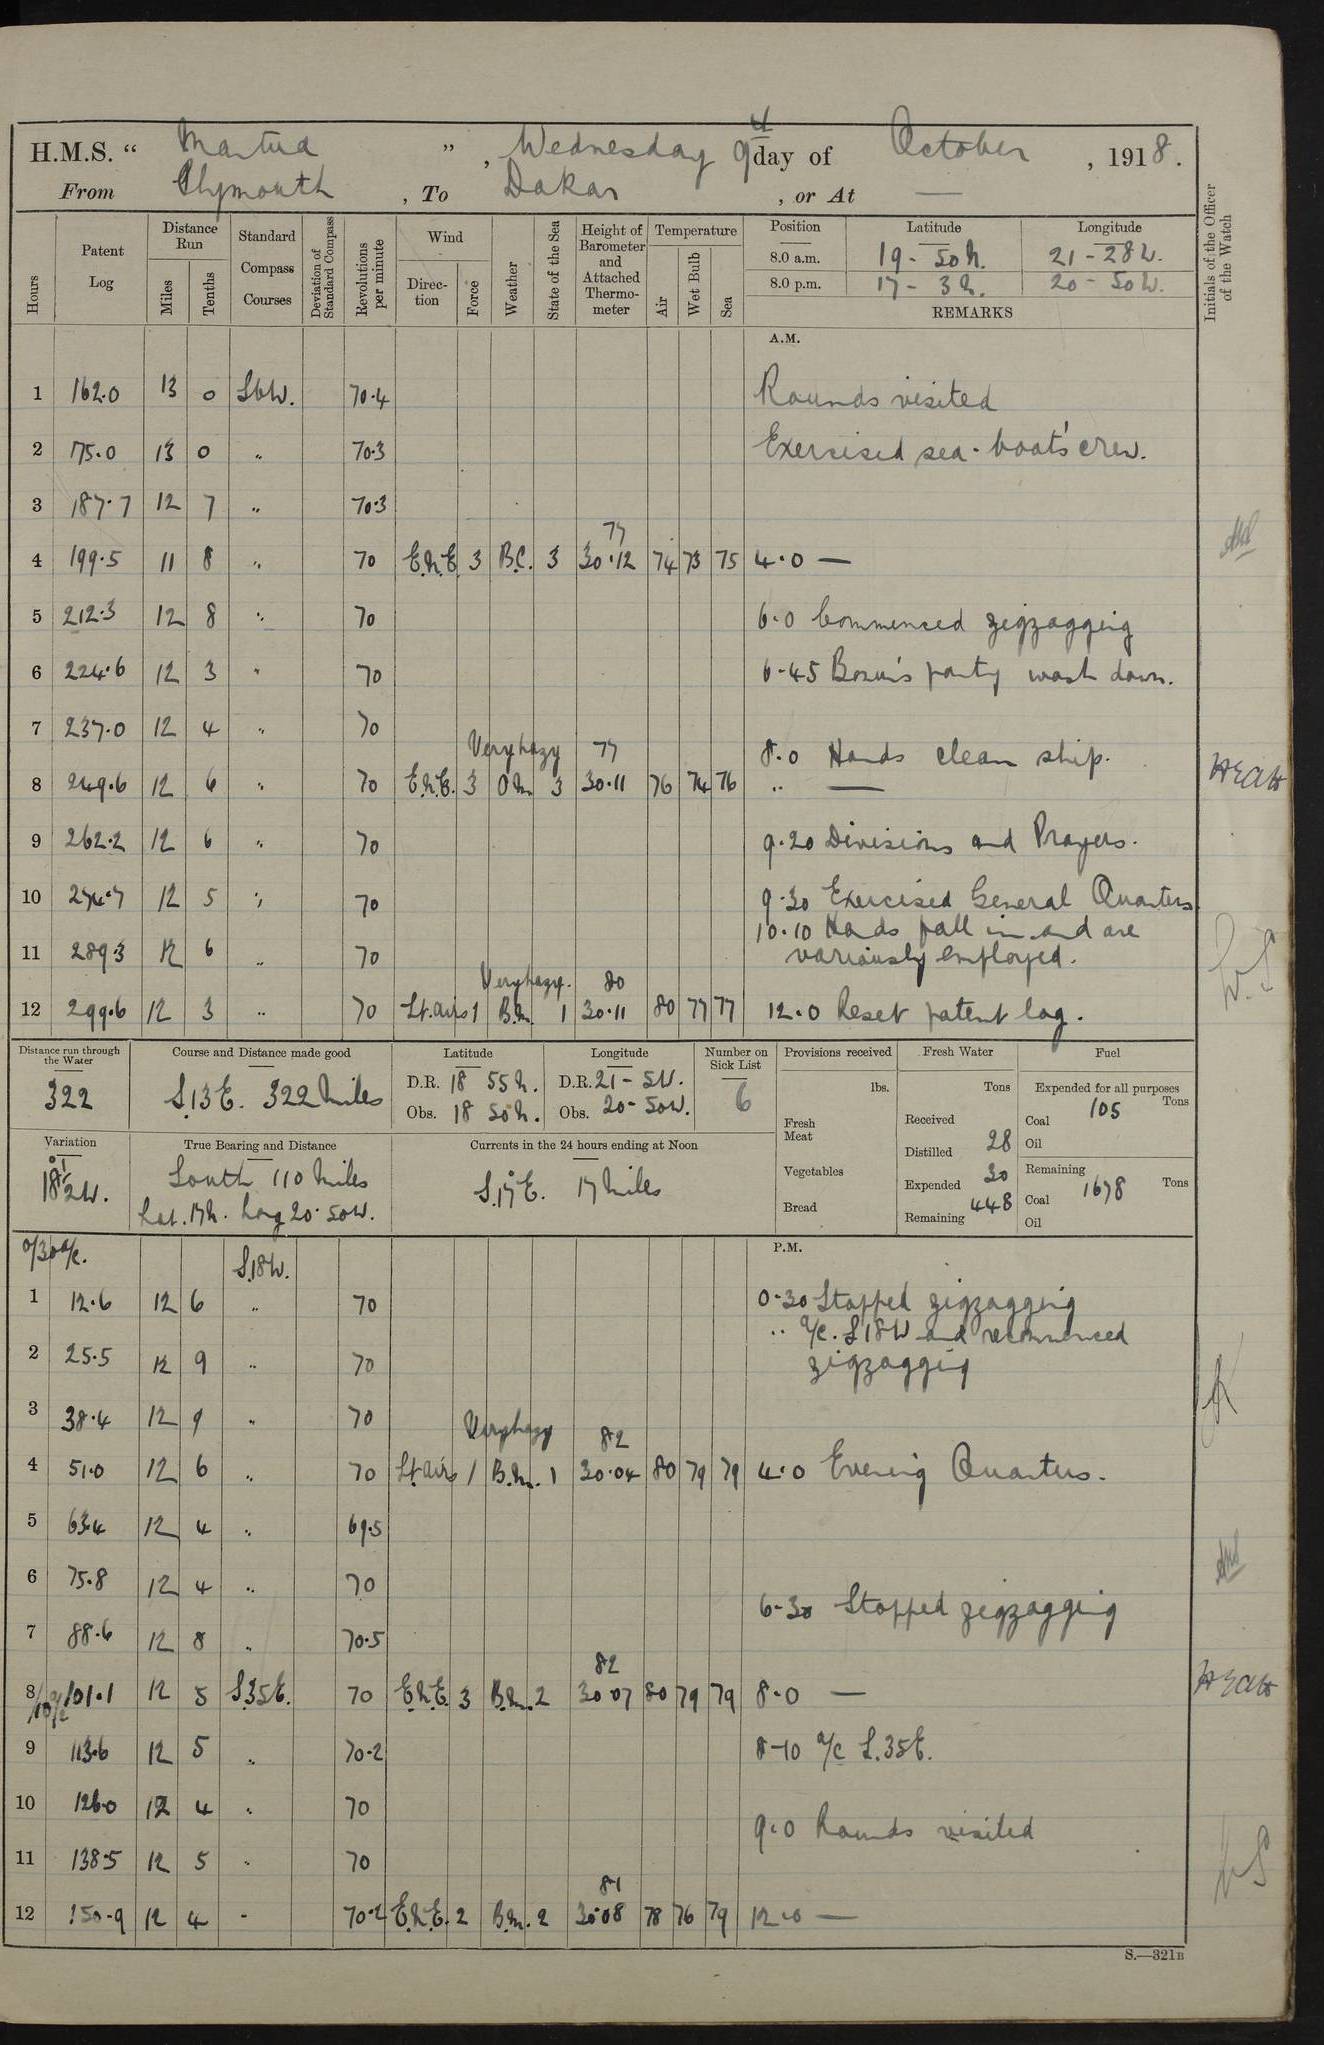 H.M.S. " Mantua ", Wednesday 9th day of October, 1918.
From Plymouth, To Dakar, or At —
Hours
Patent Log
Distance Run
Miles
Tenths
Standard Compass Courses
Deviation of Standard Compass
Revolutions per minute
Wind
Direction
Force
Weather
State of the Sea
Height of Barometer and Attached Thermometer
Temperature
Air
Wet Bulb
Sea
Position Latitude Longitude
8.0 a.m. 19 - 50 N. 21 - 28 W.
8.0 p.m. 17 - 3 N. 20 - 50 W.
REMARKS
Initials of the Officer of the Watch
A.M.
1 162.0 13 0 SbW. 70.4 Rounds visited
2 175.0 13 0 " 70.3 Exercised sea-boat's crew.
3 187.7 12 7 " 70.3
77
4 199.5 11 8 " 70 E.N.E. 3 B.C. 3 30.12 74 73 75 4.0 —
5 212.3 12 8 " 70 6.0 Commenced zigzagging
6 224.6 12 3 " 70 6-45 Bosun's party wash down.
7 237.0 12 4 " 70
Very hazy 77 8.0 Hands clean ship.
8 249.6 12 6 " 70 E.N.E. 3 O.M. 3 30.11 76 74 76 " —
9 262.2 12 6 " 70 9.20 Divisions and Prayers.
10 274.7 12 5 " 70 9.30 Exercised General Quarters
10.10 Hands fall in and are
11 289.3 12 6 " 70 variously employed.
Very hazy. 80
12 299.6 12 3 " 70 Lt. airs 1 B.M. 1 30.11 80 77 77 12.0 Reset patent log.
Distance run through the Water
322
Course and Distance made good
S.13E. 322 Miles
Latitude
D.R. 18 55 N.
Obs. 18 50 N.
Longitude
D.R. 21 - 5 W.
Obs. 20 - 50 W.
Number on Sick List
6
Provisions received
lbs.
Fresh Meat
Vegetables
Bread
Fresh Water
Tons
Received
Distilled 28
Expended 30
Remaining 448
Fuel
Expended for all purposes
Tons
Coal 105
Oil
Remaining
Coal 1678 Tons
Oil
Variation
18½ W.
True Bearing and Distance
South 110 Miles
Lat. 17 N. Long 20. 50 W.
Currents in the 24 hours ending at Noon
S.17°E. 17 Miles
P.M.
0/30 a/c. S.18W.
1 12.6 12 6 " 70 0-30 Stopped zigzagging
" a/c. S 18 W and recommenced
2 25.5 12 9 " 70 zigzaggig
3 38.4 12 9 " 70
Very hazy 82
4 51.0 12 6 " 70 Lt. airs 1 B.M. 1 30.04 80 79 79 4.0 Evening Quarters.
5 63.4 12 4 " 69.5
6 75.8 12 4 " 70
6-30 Stopped zigzagging
7 88.6 12 8 " 70.5
82
8 101.1 12 5 S.35E. 70 E.N.E. 3 B.M. 2 30.07 80 79 79 8.0 —
/10 a/c
9 113.6 12 5 " 70.2 8-10 a/c S.35E.
10 126.0 12 4 " 70
9.0 Rounds visited
11 138.5 12 5 " 70
81
12 150.9 12 4 " 70.2 E.N.E. 2 B.M. 2 30.08 78 76 79 12.0 —
S.—321B